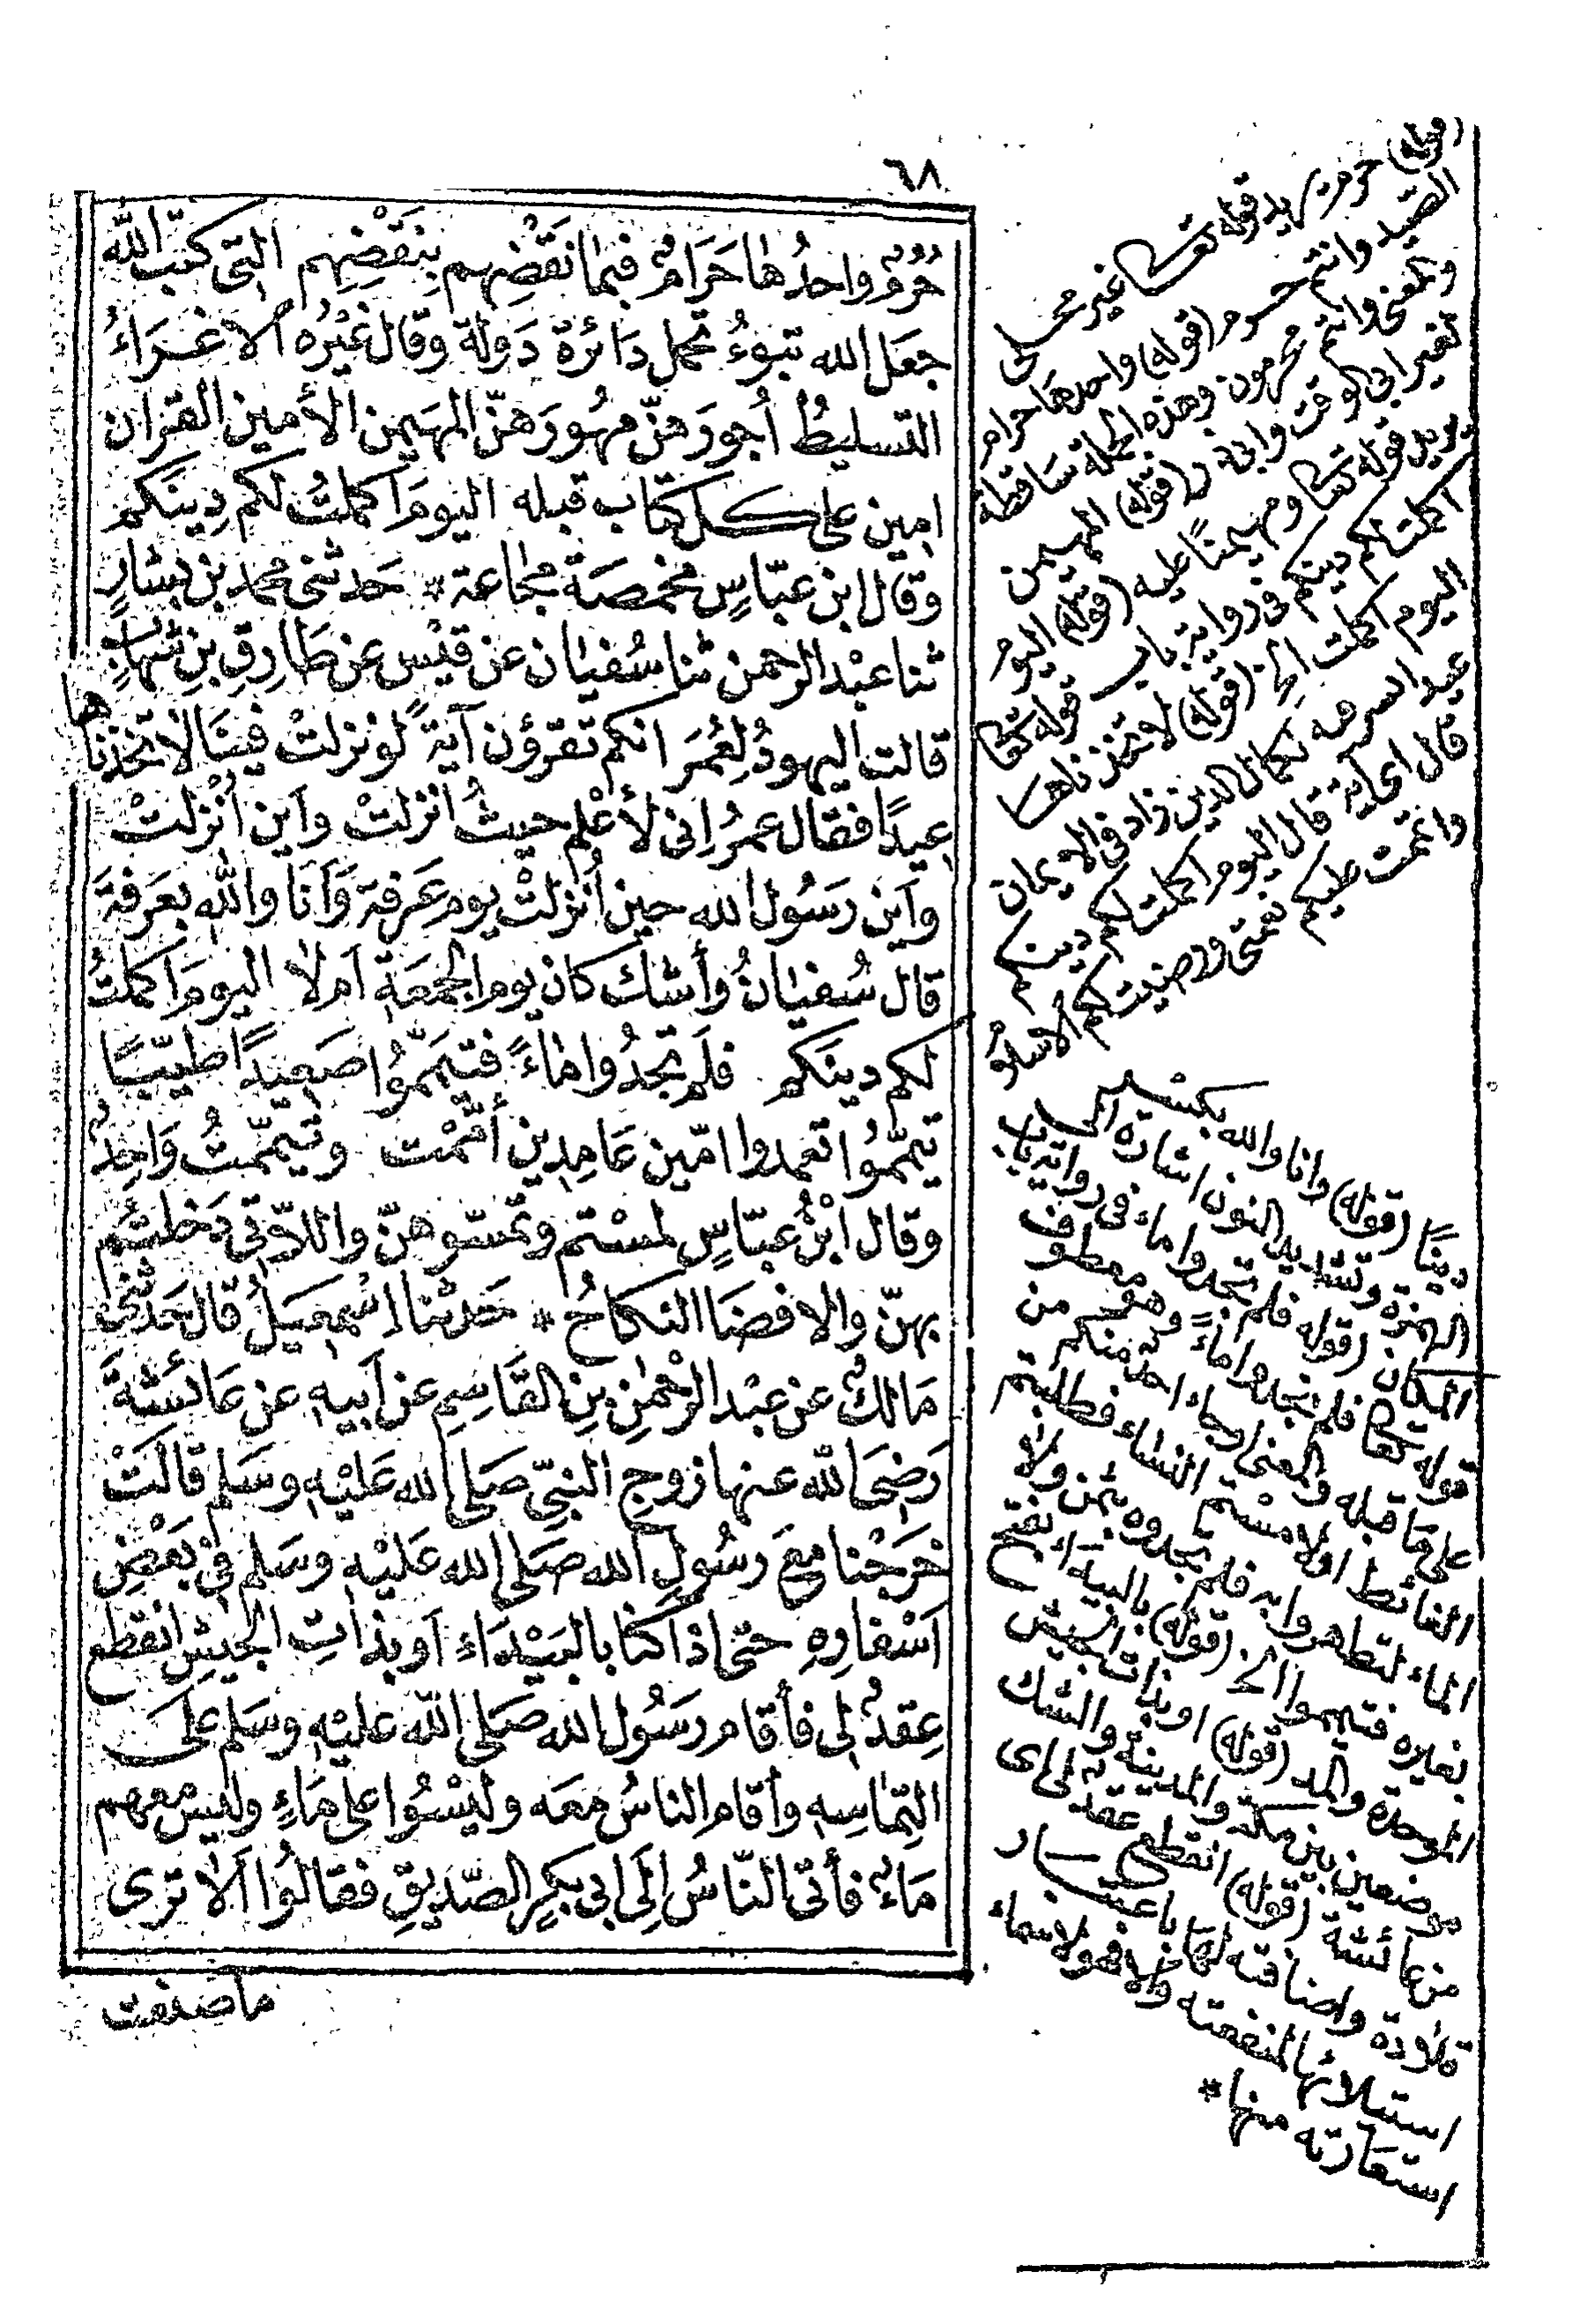 ٦٨
حُرُمٌ واحدُها حَرَامٌ فبما نَقْضِهم بِنَقْضِهِم التى كتب الله
جعَل الله تبوءُ تحمل دَائرة دَولة وقال غيْرُه الاغراءُ
التسليطُ اُجورَهنّ مهُورَهنّ المهَيمن الأمين القرآن
امين على كل كتاب قبله اليومَ اكملتُ لكم دِينَكم
وقال ابن عبّاسٍ مخمصَة مجاعة * حَدثنى محمد بن بشارٍ
ثنا عبْد الرحمن ثنا سُفيٰان عن قيْس عن طَارِقِ بنِ شهابٍ
قالت اليهودُ لِعُمَرَ انكم تقرؤن آيَةً لو نزلتْ فينَا لاتخذناها
عيدًا فقال عمرُ اِنى لأعْلم حيثُ انزلتْ واَين اُنْزلتْ
واَين رَسُول الله حين اُنزلتْ يوم عَرفة وَاَنا والله بعَرفةَ
قال سُفيٰانُ وأشك كان يوم الجمعَة اَم لا اليومَ اكملتُ
لكم دينَكم فلَم تجدُوا مَاءً فتيَمّمُوا صَعِيدًا طيّبًا
تيمّمُوا تعمدوا امّين عَامِدين أمّمْت وتيمّمتُ وَاحِدٌ
وقال ابْنُ عبّاسٍ لمسْتم وتمسّوهنّ واللاّتى دَخلتُم
بهنّ والافضَا النكاحُ * حَدثنا اسْمعيلُ قال حَدثنى
مَالكٌ عن عبْد الرحْمٰنِ بنِ القَاسِمِ عن اَبيهِ عن عَائشَةَ
رَضىَ الله عنها زوجِ النبىّ صَلى الله عَليْهِ وسَلم قالَتْ
خرَجْنا معَ رسُولِ الله صَلى الله عَليْهِ وسَلم فى بَعْضِ
اَسْفارِهِ حتّى اذا كنا بالبَيْدَاءِ اَو بذاتِ الجيشِ انقطع
عِقدٌ لى فأقام رسُول الله صَلى الله عليْهِ وسَلم على
التِمَاسِهِ وأقام الناسُ معَه وليْسُوا على مَاءٍ وليس معَهم
مَاءٌ فأتى النّاسُ اِلَى ابى بكرٍ الصّديقِ فقالُوا اَلا ترى
ما صنعت
(قوله) حرم يريد قوله تعالى غير محلى
الصّيد وانتم حرم (قوله) واحدها حرام
والمعنى وانتم محرمون وهذه الجملة ساقطة
لغير ابى الوقت وابى ذر (قوله) المهيمن
يريد قوله تعالى ومهيمنًا عليه (قوله) اليوم
اكملت لكم دينكم فى رواية باب قوله تعالى
اليوم اكملت الخ (قوله) لاتخذناها
عيدا لسروره بكمال الدين زاد فى الايمان
قال اى آية قال اليوم اكملت لكم دينكم
واتممت عليكم نعمتى ورضيت لكم الاسلام
دينًا (قوله) وانا والله بكسر
الهمزة وتشديد النون اشارة الى
المكان (قوله) فلم تجدوا ماء فى رواية باب
قوله تعالى فلم تجدوا ماءً وهو معطوف
على ما قبله والمعنى او جاء احد منكم من
الغائط او لامستم النساء فطلبتم
الماء لتطهروا به فلم تجدوه بثمن ولا
بغيره فتيمموا الخ (قوله) بالبيداء بفتح
الموحدة والمد (قوله) او بذات الجيش
موضعين بين مكة والمدينة والشك
من عائشة (قوله) انقطع عقد لى اى
قلادة واضافته لها باعتبار
استيلائها لمنفعته والا فهو لاسماء
استعارته منها *